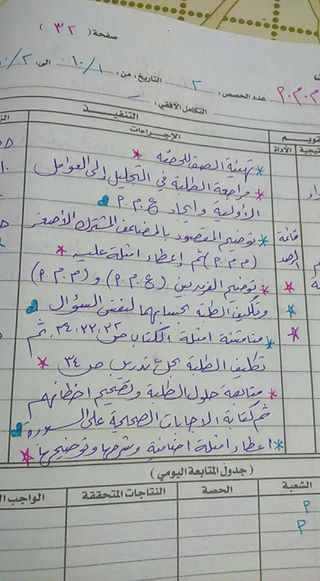 صفحة ( ٣٢ )
م.م.م عدد الحصص: ٢ التاريخ: من: ١٠/١ الى: ١٠/٢
التكامل الأفقي:
التنفيذ
الأداة الإجراءات
* تهيئة الصف للحصة *
* مراجعة الطلبة في التحليل إلى العوامل
الأولية وإيجاد ع.م.م
قائمة * توضيح المقصود بالمضاعف المشترك الأصغر
(م.م.م) ثم إعطاء امثلة عليه *
* توضيح الفرق بين (ع.م.م) و (م.م.م)
* وتكليف الطلبة بحسابهما لنفس السؤال
* مناقشة امثلة الكتاب ص ٢٢، ٢٣، ٢٤ ثم
تكليف الطلبة بحل تدريب ص ٢٤ *
* متابعة حلول الطلبة وتصحيح اخطائهم
ثم كتابة الاجابات الصحيحة على السبورة
* اعطاء امثلة اضافية وشرحها وتوضيحها *
( جدول المتابعة اليومي )
الشعبة الحصة النتاجات المتحققة الواجب
م
م